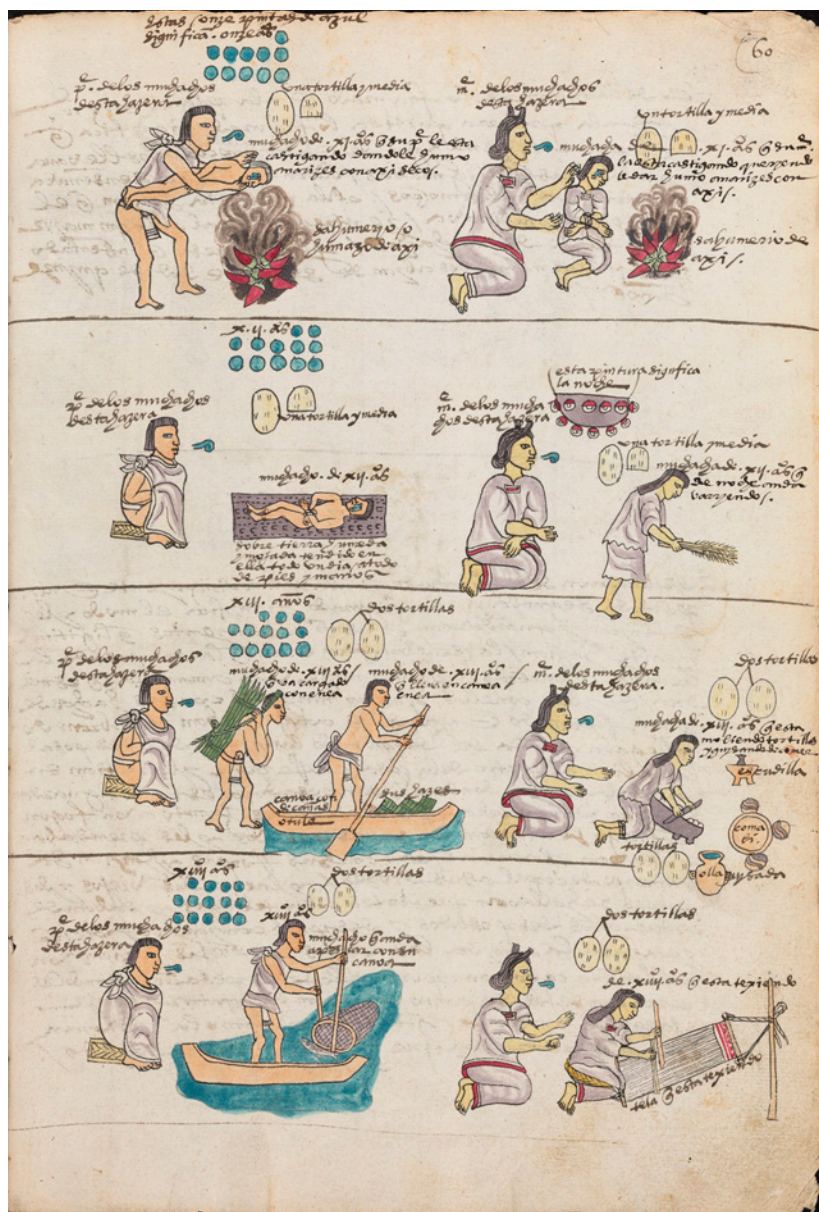 estas onze pintas de azul
significā. onze aºs
60
pe. de los muchachos
desta hazera
una tortilla y media
muchacho de .xi. aºs q̄ su pe. le esta
castigando dandole humo
a narizes con axi secos.
sahumerio o
humazo de axi
me. de los muchachos
desta hazera
un tortilla y media
muchacha de .xi. aºs q̄ su me.
la esta castigando queriendo
le dar humo a narizes con
axis.
sahumerio de
axis.
x.ii. aºs
pe. de los muchachos
desta hazera
una tortilla y media
muchacho. de xii. aºs
sobre tierra umeda
y mojada tendido en
ella todo un dia / atado
de pies y manos
esta pintura significa
la noche
me. de los mucha
chos desta hazera
una tortilla y media
muchacha de .xii. aºs q̄
de noche anda
varriendo.
xiii. años
dos tortillas
pe. de los muchachos
desta hazera
muchacho de .xiii. aºs /
q̄ va cargado
con enea
muchacho de .xiii. aºs.
q̄ lleva en canoa
enea
canoa con
de cañas
o tule
sus hazes
me. de los muchachos
desta hazera.
dos tortillas
muchacha de .xiii. aºs q̄ esta
moliendo tortillas
y guisando de comer
escudilla
coma
li.
tortillas
olla guisada
xiiii aºs
dos tortillas
pe. de los muchachos
desta hazera
xiiii aºs
muchacho q̄ anda
a pescar con su
canoa
dos tortillas
de .xiiii. aºs q̄ esta texiendo
tela q̄ esta texiendo